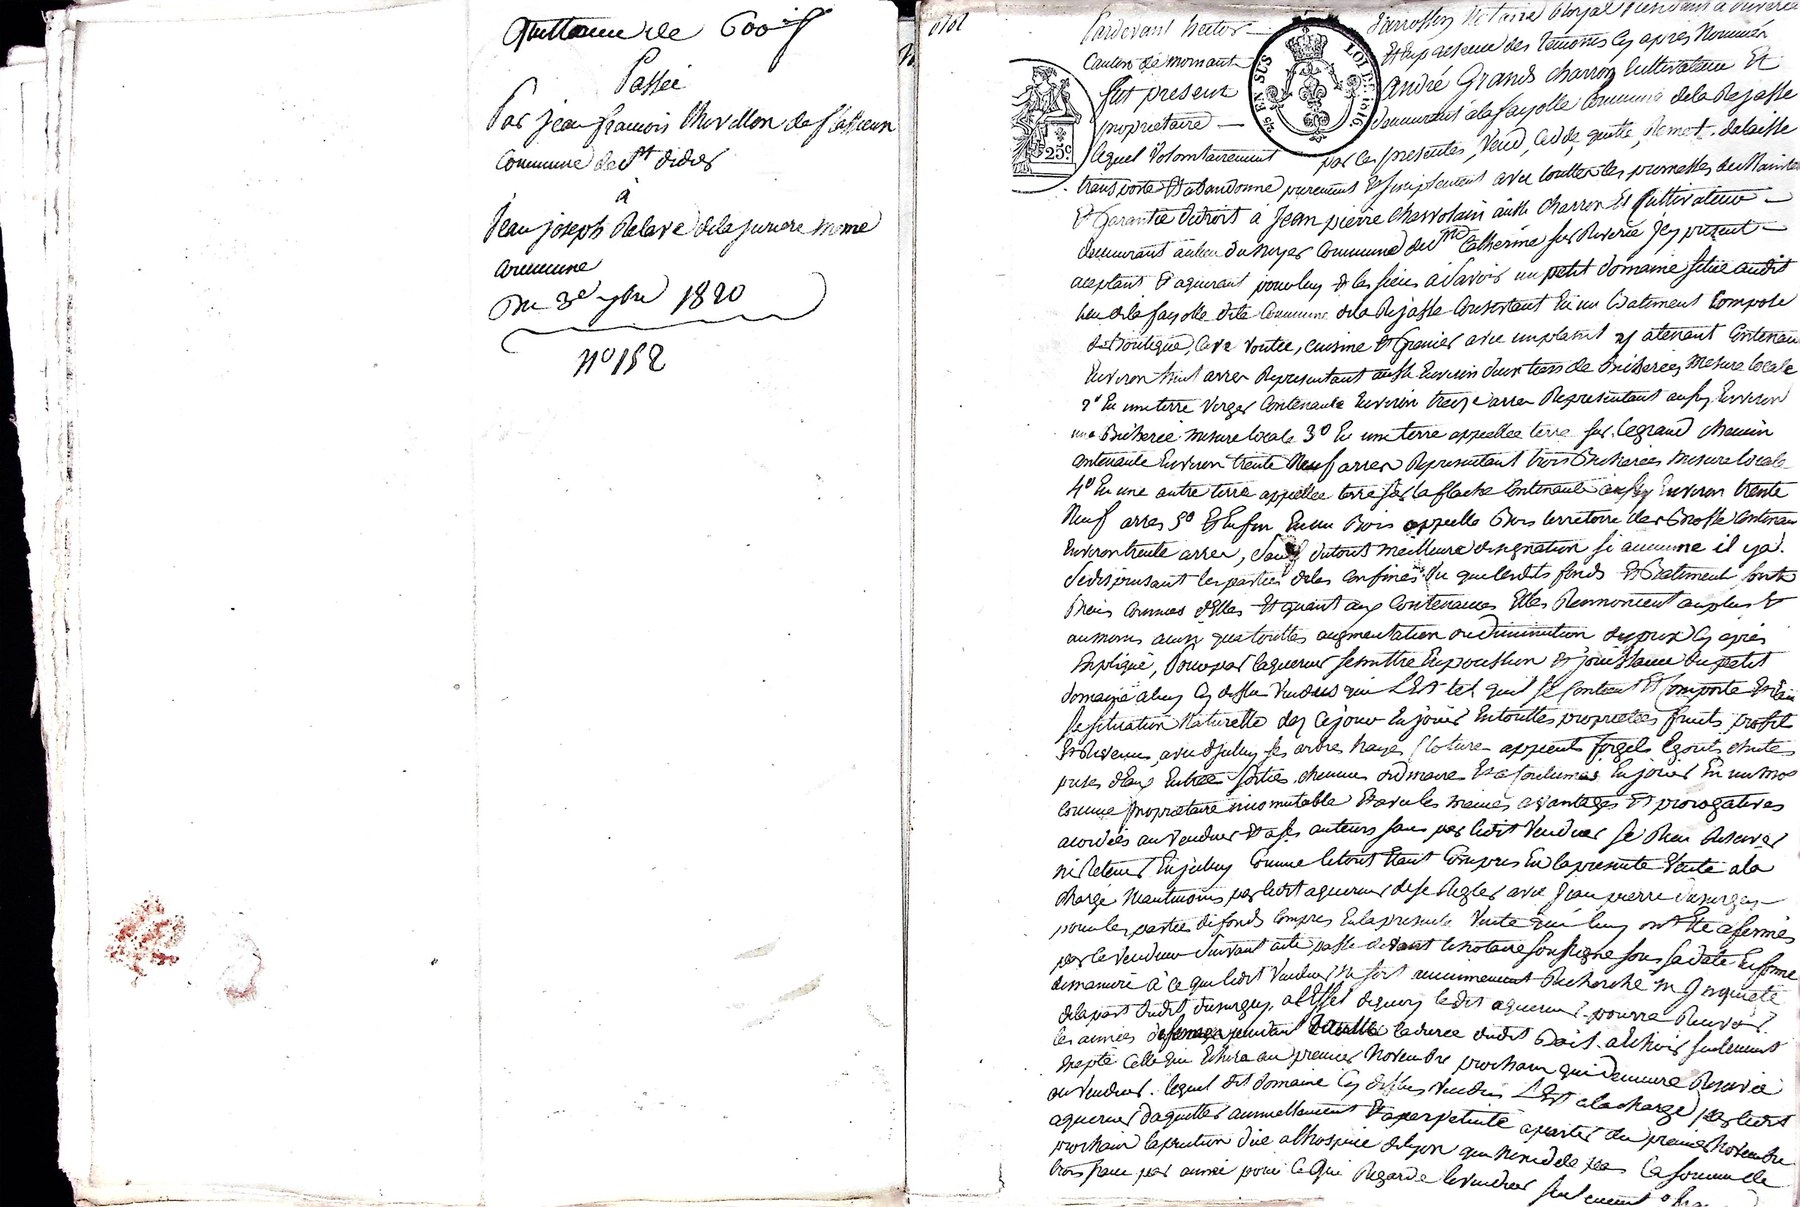 Quittance de 600 ff
Passée
Par jean françois Chevillon de
commune de St didier
à
jean joseph Relave de la même
commune
Du 3e 7bre 1820
No 152
Pardevant hector Notaire Royal
Canton de mornant Et En presence des temoins cy apres Nommés
fut present André Grand charron Cultivateur Et
proprietaire demeurant à la fayolle commune de la Rajasse
lequel volontairement par ces presentes, Vend, cedde, quitte, Remet, delaisse
transporte Et abandonne purement Et simplement avec touttes les promesses de Mainten
Et Garantie de droit à Jean pierre aussi charron Et Cultivateur
demeurant au lieu du noyer Commune de Ste Catherine sur Riverie Jcy present
aceptant Et aquerant pour luy Et les siens à savoir un petit domaine situé audit
lieu de la fayolle dite Commune de la Rajasse Consistant En un Batiment Composé
de Boutique, Cave voutée, cuisine Et Grenier avec un y atenant Contenan
Environ huit arres Representant aussi Environ d'un tiers de Bicherée, mesure locale
2o En une terre verger Contenante Environ treize arres Representant aussy Environ
une Bicherée mesure locale 3o En une terre appellée terre sur le grand chemin
Contenante Environ trente Neuf arres Representant trois Bicherées mesure locale
4o En une autre terre appellée terre sur la flache Contenante aussy Environ trente
Neuf arres 5o Et Enfin En un Bois appellé Bois territoire des Brosse Contenan
Environ trente arres, sauf du tout meilleure designation si aucunne il y a.
se dispensant les parties de les confiner vu que lesdits fonds Et Batiment sont
Bien connues d'Elles Et quant aux Contenances Elles Renoncent au plus Et
au moins ainsy qua touttes augmentation ou diminution du prix cy après
Expliqué, Pour par laquereur se mettre En possession Et jouissance du petit
domaine a luy Cy dessus vendus qui L'Est tel quil se Contient Et Comporte Et dans
sa situation Naturelle des ce jour En jouir En touttes proprietées fruits profit
Et Revenus, avec d'iceluy ses arbres hayes Cloture appents forgets Egouts chutes
prises d'Eaux Entrée sorties chemins ordinaire Et a Coutumés En jouir En un mot
comme proprietaire incomutable Et avec les mêmes avantages Et prorogatives
acordées au vendeur Et a ses auteurs sans par ledit vendeur se Rien Reserver
ni Retenir En iceluy Comme le tout Etant Compris En la presente Vente a la
charge Neantmoins par ledit aquereur de se Regler avec Jean pierre
pour les parties de fonds Compris En la presente Vente qui luy ont Eté afermés
par le vendeur suivant acte passé devant le notaire soussigné sous sa date En forme
de maniere à ce que ledit vendeur Ne soit aucunement Recherché ni Jnquieté
de la part dudit a l'Effet de quoy ledit aquereur pourra Recevoir
les années pendant la durée dudit Bail, a Echoir seulement
Excepté Celle qui Echoira au premier Novembre prochain qui demeure Reservée
au vendeur. lequel dit domaine Cy dessus vendu L'Est a la charge par ledit
aquereur d'aquitter annuellement Et a perpetuité a partir du premier Novembre
prochain la pention düe a l'hospice de lyon qui N'excede pas la somme de
trois francs par année pour Ce qui Regarde le vendeur seulement
EN SUS
LOI DE 1816
25c